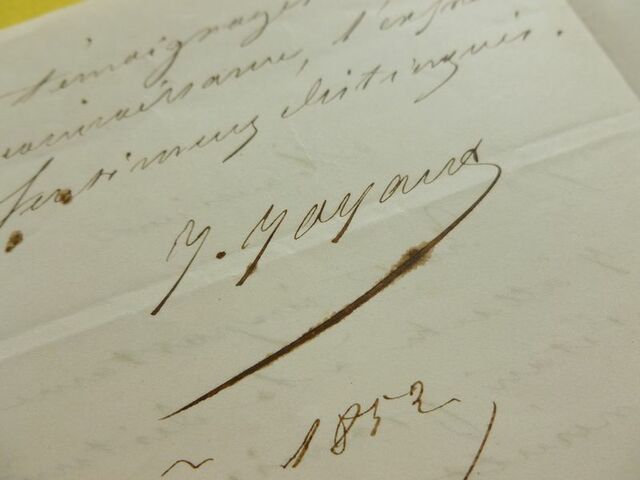 témoignages
connaissance, l'expre
sentiments distingués.
J. Joyaux
1852